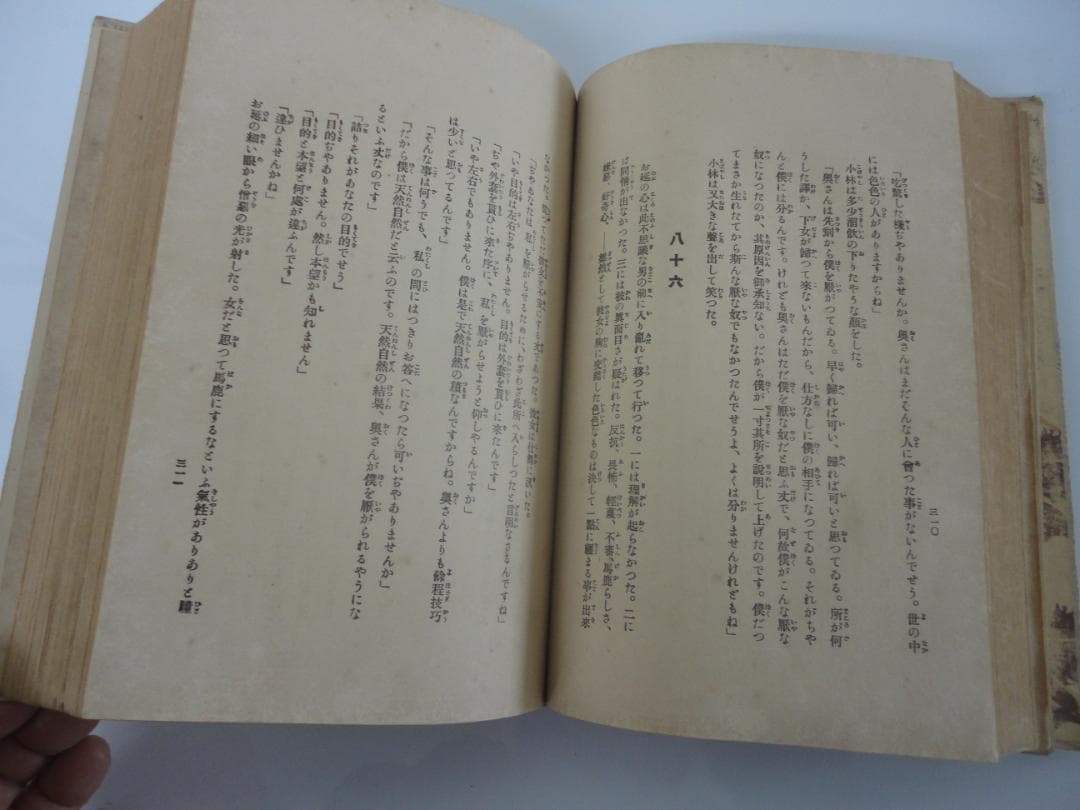 「吃驚した樣ぢやありませんか。奥さんはまだそんな人に會つた事がないんでせう。世の中
には色色の人がありますからね」
小林は多少溜飲の下りたやうな顔をした。
「奥さんは先刻から僕を厭がつてゐる。早く歸れば可い、歸れば可いと思つてゐる。所が何
うした譯か、下女が歸つて來ないもんだから、仕方なしに僕の相手になつてゐる。それがちや
んと僕には分るんです。けれども奥さんはただ僕を厭な奴だと思ふ丈で、何故僕がこんな厭な
奴になつたのか、其原因を御承知ない。だから僕が一寸其所を説明して上げたのです。僕だつ
てまさか生れてから斯んな厭な奴でもなかつたんでせうよ、よくは分りませんけれどもね」
小林は又大きな聲を出して笑つた。
三一〇
八十六
お延の心は此不思議な男の前に入り亂れて移つて行つた。一には理解が起らなかつた。二に
は同情が出なかつた。三には彼の眞面目さが疑はれた。反抗、畏怖、輕蔑、不審、馬鹿らしさ、
嫌惡、好奇心、――雜然として彼女の胸に交錯した色色なものは決して一點に纏まる事が出來
なかつた。
「ぢやあなたは私を厭がらせるために、わざわざ此所へ入らしつたと言明なさるんですね」
「いや目的は左右ぢやありません。目的は外套を貰ひに來たんです」
「ぢや外套を貰ひに來た序に、私を厭がらせようと仰しやるんですか」
「いや左右でもありません。僕は是で天然自然の積なんですからね。奥さんよりも餘程技巧
は少いと思つてるんです」
「そんな事は何うでも、私の問にはつきりお答へになつたら可いぢやありませんか」
「だから僕は天然自然だと云ふのです。天然自然の結果、奥さんが僕を厭がられるやうにな
るといふ丈なのです」
「詰りそれがあなたの目的でせう」
「目的ぢやありません。然し本望かも知れません」
「目的と本望と何處が違ふんです」
「違ひませんかね」
お延の細い眼から憎惡の光が射した。女だと思つて馬鹿にするなといふ氣性がありありと瞳
三一一